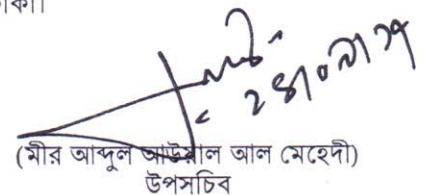 ঢাকা।
(মীর আব্দুল আউয়াল আল মেহেদী)
উপসচিব